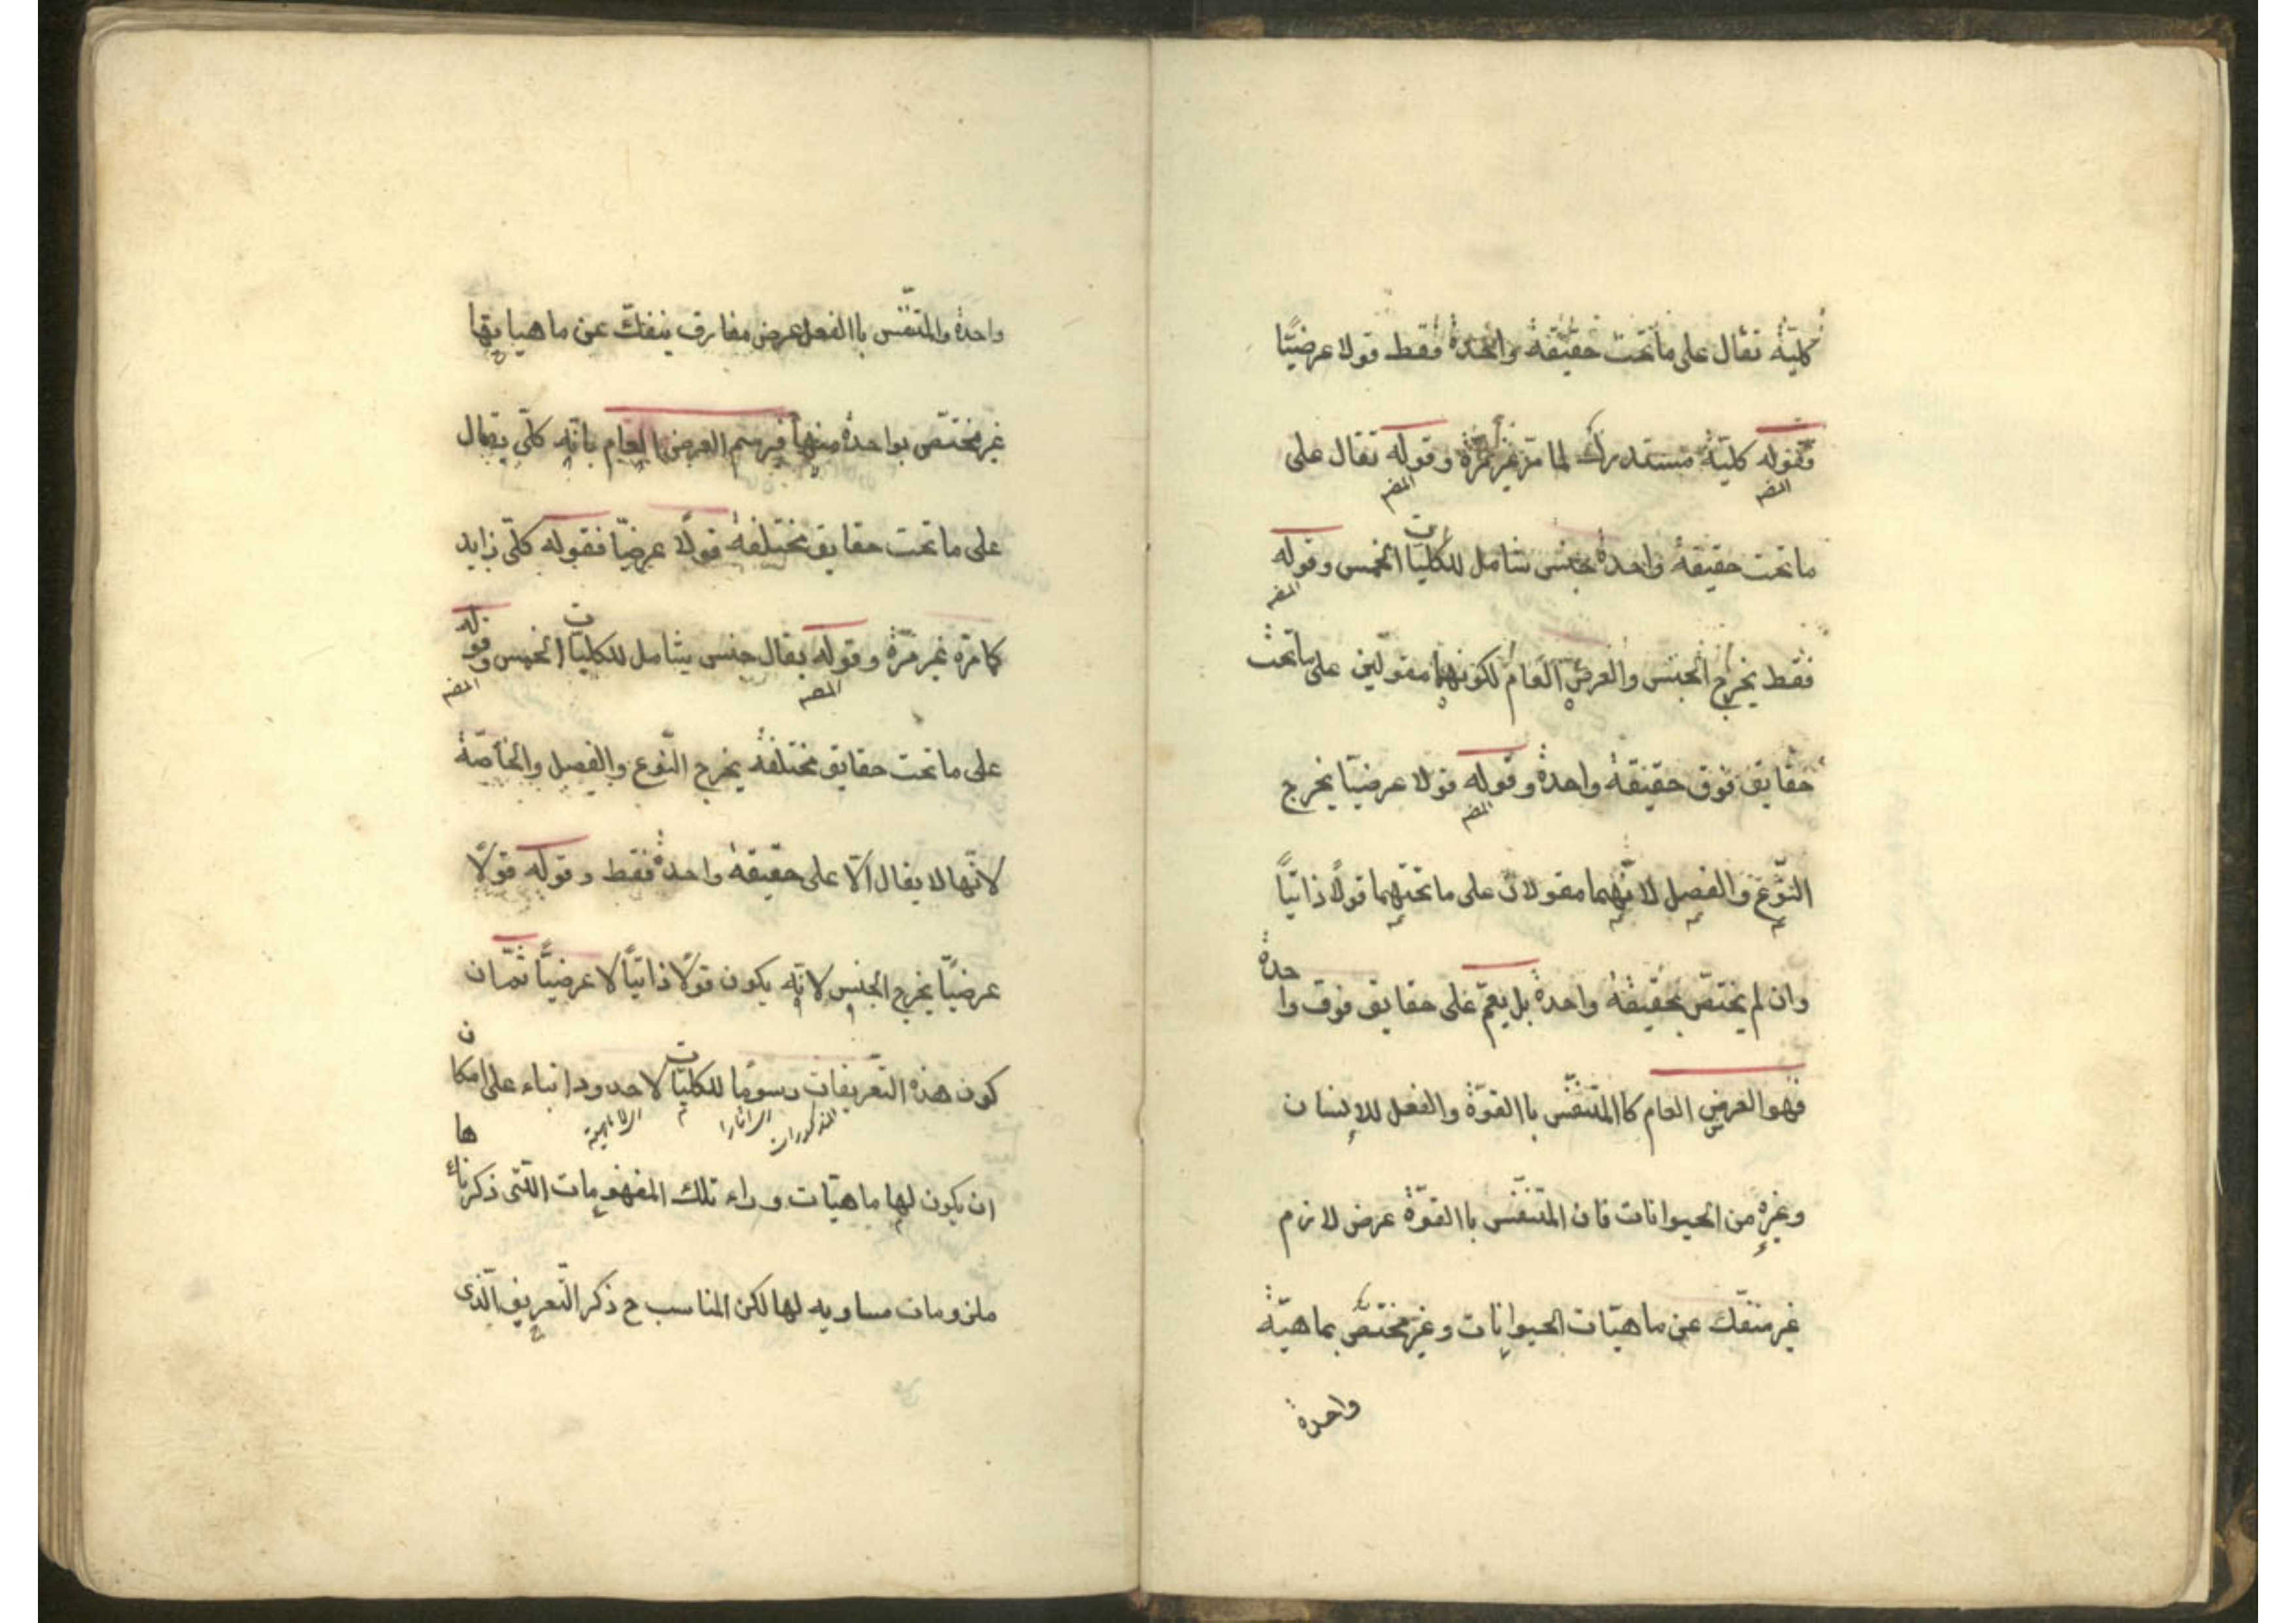 كليّة تقال على ما تحت حقيقة واحدة فقط قولا عرضيّا
فقوله كليّة مستدرك لما مرّ غير مرّة وقوله تقال على
المصـ المصـ
ما تحت حقيقة واحدة جنس شامل للكليات الخمس وقوله
المصـ
فقط يخرج الجنس والعرض العام لكونهما مقولين على ما تحت
حقايق فوق حقيقة واحدة وقوله قولا عرضيّا يخرج
المصـ
النّوع والفصل لانّهما مقولان على ما تحتهما قولًا ذاتيّاً
وان لم يختصّ بحقيقة واحدة بل يعمّ على حقايق فوق واحدة
فهو العرض العام كاالمتنفّس باالقوّة والفعل للإنسان
وغيره من الحيوانات فان المتنفّس باالقوّة عرض لازم
غير منفّك عن ماهيّات الحيوانات وغير مختصّ بماهيّة
واحدة
واحدة والمتنفّس باالفعل عرض مفارق ينفكّ عن ماهياتها
غير مختصّ بواحدة منها فيرسم العرض العام بانّه كلّى يقال
على ما تحت حقايق مختلفة قولًا عرضيّا فقوله كلّى زايد
كما مرّ غير مرّة وقوله يقال جنس شامل للكليات الخمس وقوله
المصـ المصـ
على ما تحت حقايق مختلفة يخرج النّوع والفصل والخاصّة
لانّها لا يقال الّا على حقيقة واحدة فقط وقوله قولًا
عرضيّا يخرج الجنس لانّه يكون قولًا ذاتيّاً لا عرضيّاً ثمّ ان
كون هذه التّعريفات رسومًا للكليّات لا حدودا بناء على امكان
المذكورات
ان يكون لها ماهيّات وراء تلك المفهومات الّتى ذكرناها
ملزومات مساويه لها لكن المناسب ح ذكر التّعريف الّذى